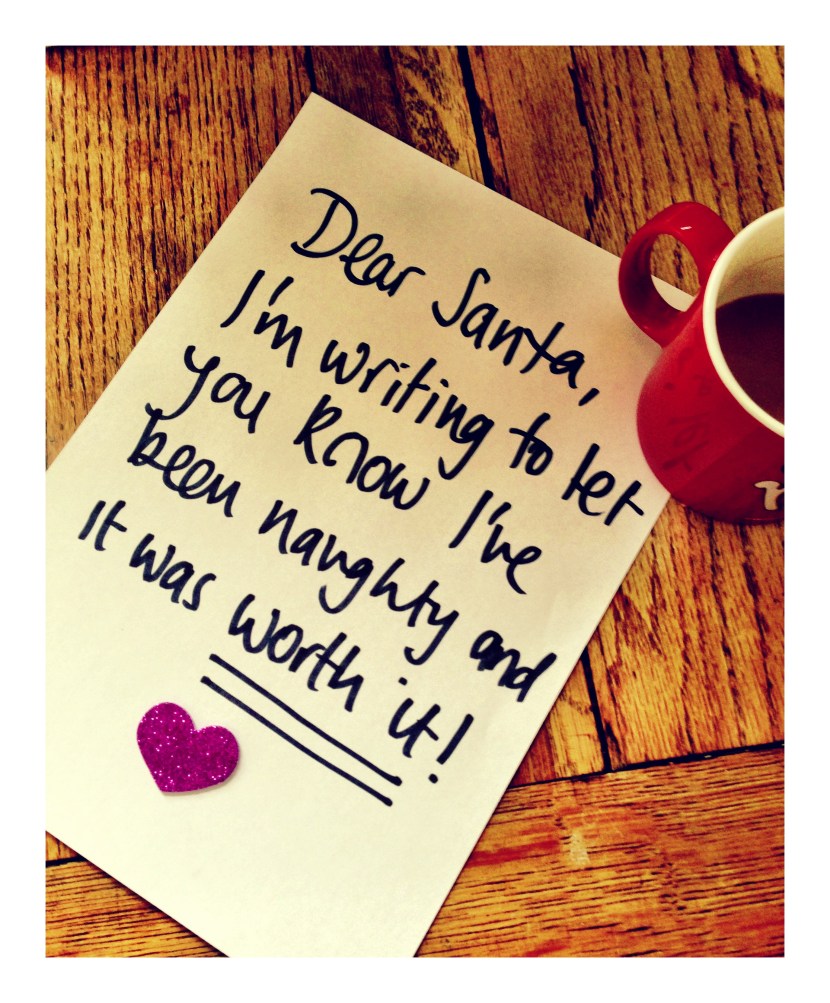 Dear Santa,
I'm writing to let
you know I've
been naughty and
it was worth it!